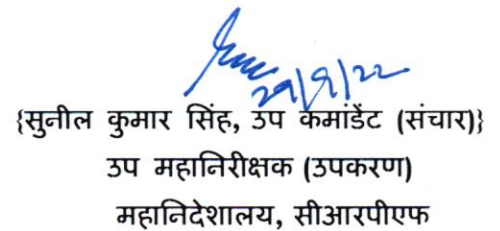 29/9/22
{सुनील कुमार सिंह, उप कमांडेंट (संचार)}
उप महानिरीक्षक (उपकरण)
महानिदेशालय, सीआरपीएफ